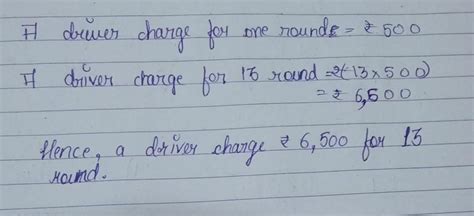 A driver charge for one rounds = ₹ 500
A driver charge for 13 round = ₹(13×500)
= ₹ 6,500
Hence, a driver charge ₹ 6,500 for 13
round.